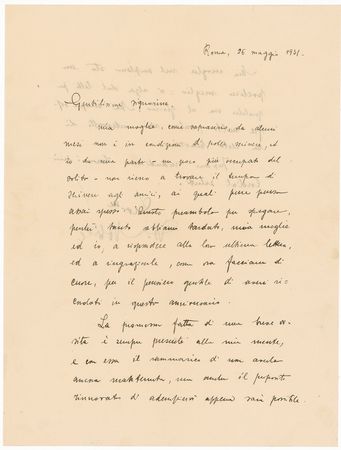 Roma, 26 maggio 1931.
Gentilissima Signorina,
mia moglie, come sapranno, da alcuni
mesi non è in condizioni di poter scrivere, ed
io da mia parte – un poco più occupato del
solito – non riesco a trovare il tempo di
scrivere agli amici, ai quali pure penso
assai spesso. Questo preambolo per spiegare,
perché tanto abbiamo tardato, mia moglie
ed io, a rispondere alla loro ultima lettera,
ed a ringraziarle, come ora facciamo di
cuore, per il pensiero gentile di aversi ri-
cordati in questo anniversario.
La promessa fatta di una breve vi-
sita è sempre presente alla mia mente,
e con essa il rammarico di non averla
ancora mantenuta, ma anche il proposito
rinnovato di adempiervi appena sarà possibile.